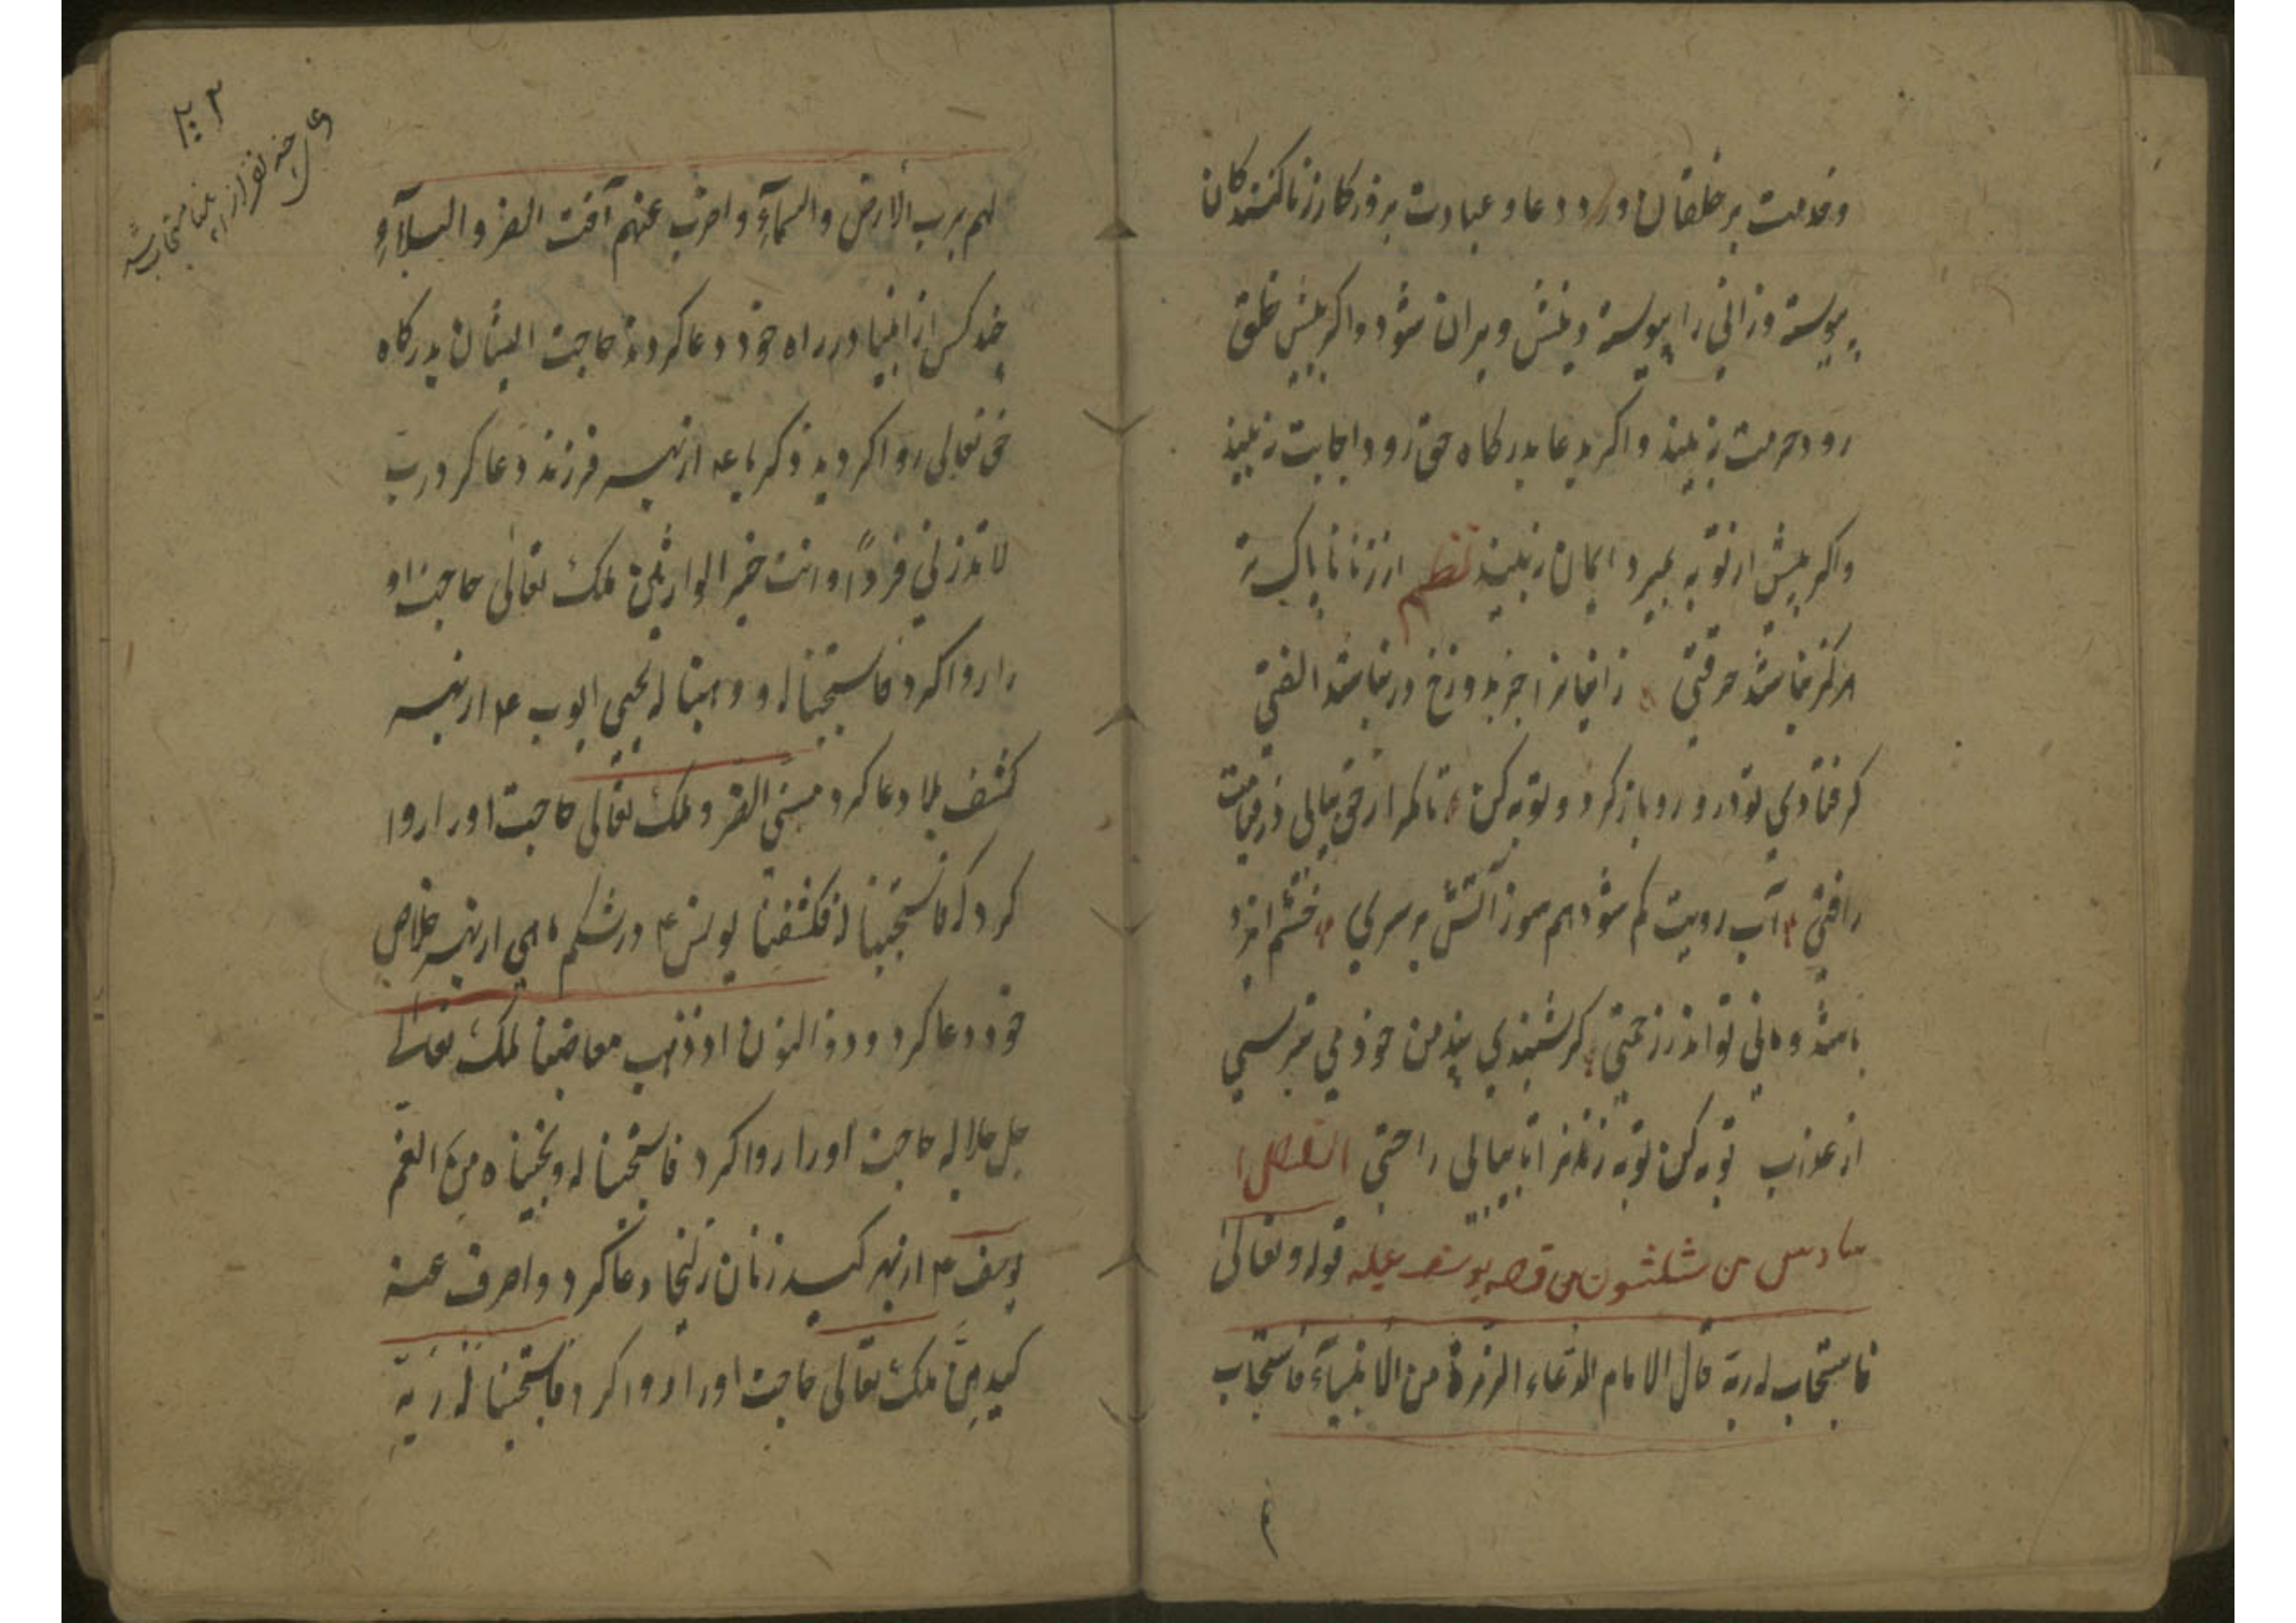 وخدمت بر خلقان ورد و دعا و عبادت بروزكار زناكنندكان
پیوسته وزانی را پیوسته دینش ویران شود واكر پیش خلق
رود حرمت نبیند واكر بدعا بدركاه حق رود اجابت نبیند
واكر پیش از توبه بمیرد ایمان نبیند نظم از زنا ناپاك تر
هركز نباشد حرفتی زانیانرا جز بدوزخ در نباشد الفتی
كر فتادی تو درو رو باز كرد و توبه كن تا مكر از حق بیابی در قیامت
رافتی آب رویت كم شود هم سوز آتش بر سری خشم ایزد
باشد ومانی تو اندر زحمتی كر شنیدی پند من خود می نترسی
از عذاب توبه كن توبه ز زنا تا بیابی راحتی الفصل ا
سادس من ثلثون من قصه یوسف علیه قوله وتعالی
فاستجاب له ربه قال الامام الدعاء الزمرة من الانبیآء فاستجاب
۲۰۲
چند نفر از انبیا مستجاب شد
لهم برب الأرض والسمآء واصرف عنهم آفت الضر والبلآء
چند كس از انبیا در راه خود دعا كردند حاجت ایشان بدركاه
حق تعالی روا كردید ذكریا ع از بهر فرزند دعا كرد رب
لا تذرنی فرداً وانت خیر الوارثین ملك تعالی حاجت او
را روا كرد فاستجبنا له ووهبنا له یحیی ایوب ع از بهر
كشف بلا دعا كرد مسنی الضر وملك تعالی حاجت اورا روا
كرد كه فاستجبنا له فكشفنا یونس ع در شكم ماهی از بهر خلاص
خود دعا كرد وذو النون اذ ذهب مغاضبا ملك تعالی
جل جلاله حاجت اورا روا كرد فاستجبنا له ونجیناه من الغم
یوسف ع از بهر كید زنان زلیخا دعا كرد واصرف عنه
كیدهن ملك تعالی حاجت اورا روا كرد فاستجبنا له ربه